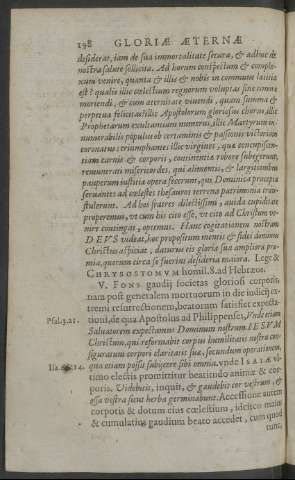 198 GLORIÆ ÆTERNÆ
desiderat, iam de sua immortalitate secura, & adhuc de
nostra salute sollicita. Ad horum conspectum & comple-
xum venire, quanta & illis & nobis in commune lætitia
est? qualis illic cælestium regnorum voluptas sine timore
moriendi, & cum æternitate vivendi, quam summa &
perpetua felicitas! Illic Apostolorum gloriosus chorus, illic
Prophetarum exultantium numerus, illic Martyrum in-
numerabilis populus ob certaminis & passionis victoriam
coronatus: triumphantes illic virgines, quæ concupiscen-
tiam carnis & corporis, continentiæ robore subegerunt,
remunerati misericordes, qui alimentis, & largitionibus
pauperum iustitiæ opera fecerunt, qui Dominica præcepta
servantes ad cælestes thesauros terrena patrimonia tran-
stulerunt. Ad hos fratres dilectissimi, avida cupiditate
properemus, vt cum his cito esse, vt cito ad Christum ve-
nire contingat, optemus. Hanc cogitationem nostram
DEVS videat, hoc propositum mentis & fidei dominus
Christus aspiciat, daturus eis gloriæ suæ ampliora præ-
mia, quorum circa se fuerint desideria maiora. Lege &
CHRYSOSTOMVM homil. 8. ad Hebræos.
V. FONS gaudij societas gloriosi corporis,
nam post generalem mortuorum in die iudicij ex-
tremi resurrectionem, beatorum satisfiet expecta-
Psal. 3. 21. tioni, de qua Apostolus ad Philippenses, Vnde etiam
Salvatorem expectamus Dominum nostrum IESVM
Christum, qui reformabit corpus humilitatis nostræ con-
figuratum corpori claritatis suæ, secundum operationem,
Isa. 14. qua etiam possit subijcere sibi omnia. vnde ISAIÆ vl-
timo electis promittitur beatitudo animæ & cor-
poris. Videbitis, inquit, & gaudebit cor vestrum, &
ossa vestra sicut herba germinabunt. Accessione autem
corporis & dotum eius cælestium, idcirco maior
& cumulatius gaudium beato accedet, cum quod
tunc